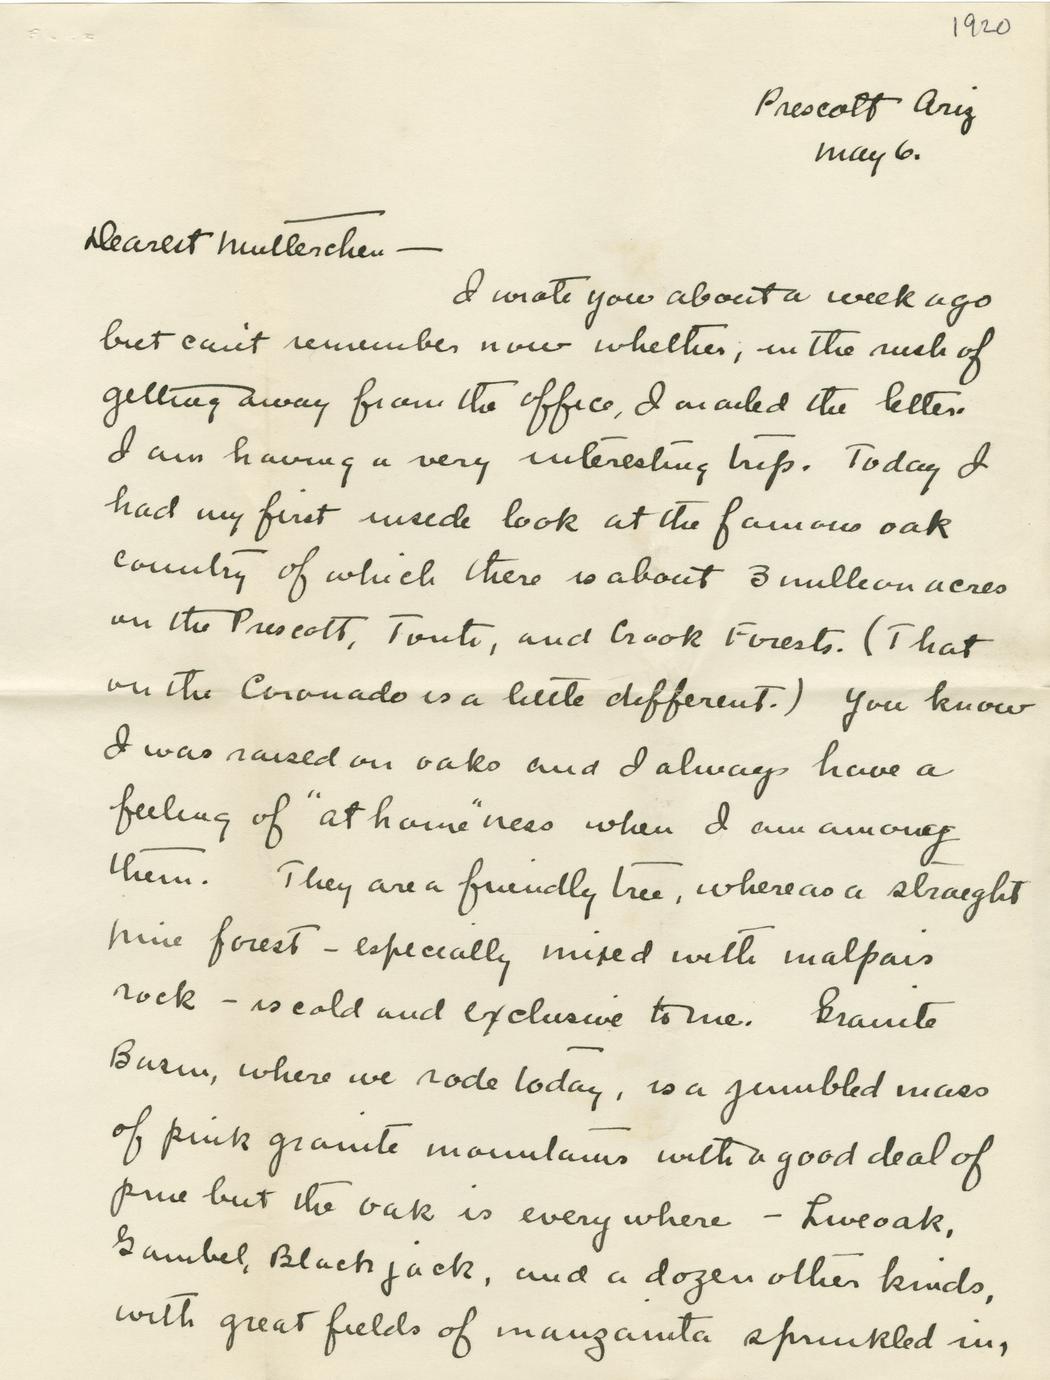 1920
Prescott Ariz
May 6.
Dearest Mutterchen —
I wrote you about a week ago
but can't remember now whether, in the rush of
getting away from the office, I mailed the letter.
I am having a very interesting trip. Today I
had my first inside look at the famous oak
country of which there is about 3 million acres
on the Prescott, Tonto, and Crook Forests. (That
on the Coronado is a little different.) You know
I was raised on oaks and I always have a
feeling of "at home"ness when I am among
them. They are a friendly tree, whereas a straight
pine forest – especially mixed with malpais
rock – is cold and exclusive to me. Granite
Basin, where we rode today, is a jumbled mass
of pink granite mountains with a good deal of
pine but the oak is everywhere – Liveoak,
Gambel, Blackjack, and a dozen other kinds,
with great fields of manzanita sprinkled in,